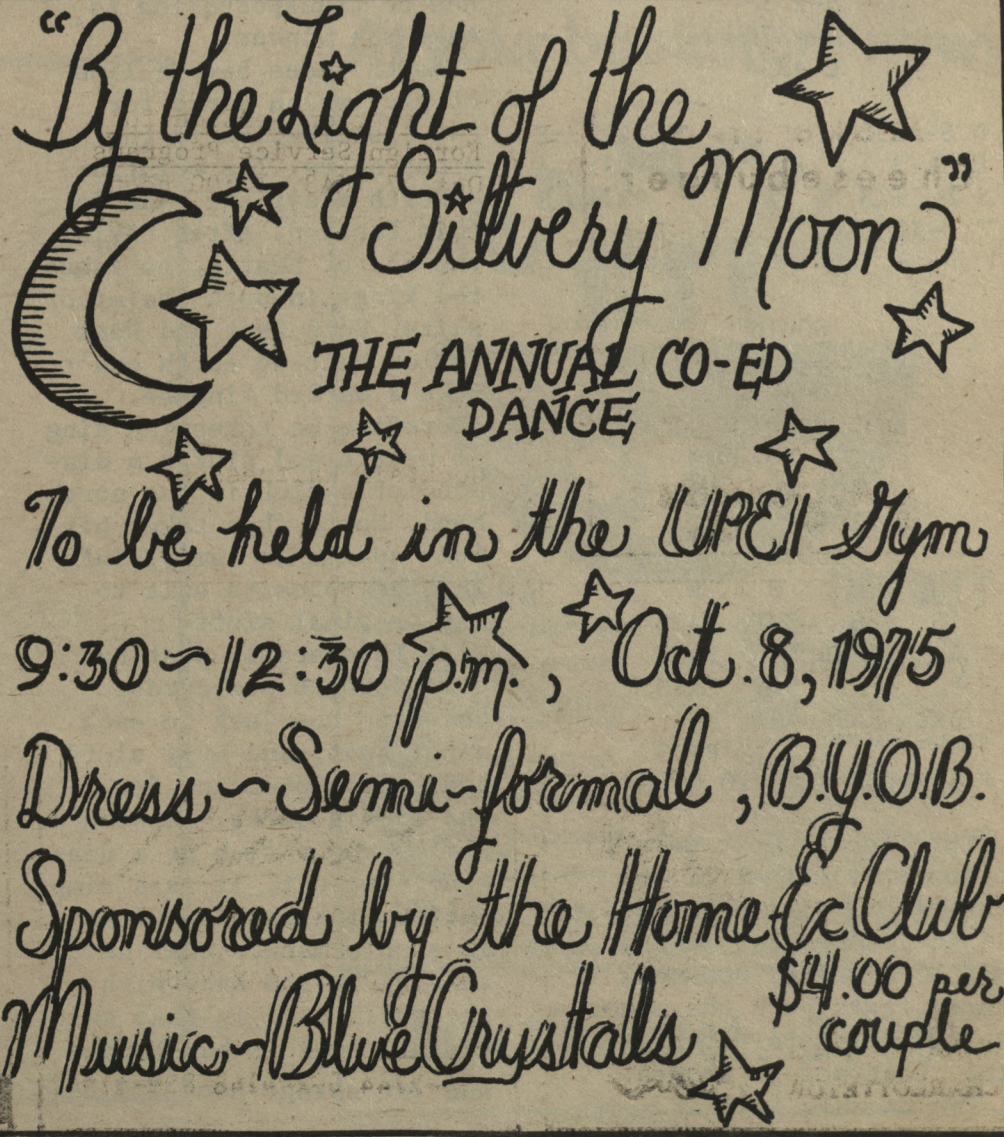 "By the Light of the
Silvery Moon"
THE ANNUAL CO-ED
DANCE
To be held in the UPEI Gym
9:30~12:30 p.m., Oct. 8, 1975
Dress~Semi-formal, B.Y.O.B.
Sponsored by the Home Ec Club
$4.00 per
couple
Music~Blue Crystals